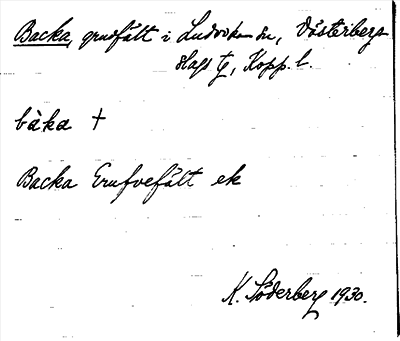 Backa, gruvfält i Ludvika sn, Västerbergs
slags tg, Kopp. l.
bàka +
Backa Grufvefält ek
K. Söderberg 1930.